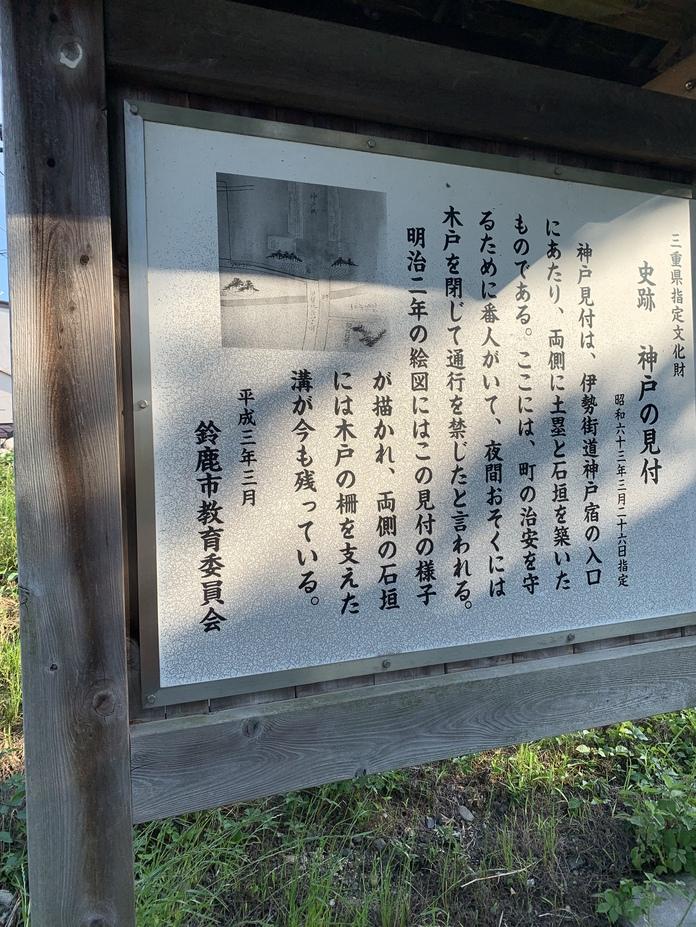 三重県指定文化財
史跡 神戸の見付
昭和六十三年三月二十六日指定
神戸見付は、伊勢街道神戸宿の入口
にあたり、両側に土塁と石垣を築いた
ものである。ここには、町の治安を守
るために番人がいて、夜間おそくには
木戸を閉じて通行を禁じたと言われる。
明治二年の絵図にはこの見付の様子
が描かれ、両側の石垣
には木戸の柵を支えた
溝が今も残っている。
平成三年三月
鈴鹿市教育委員会